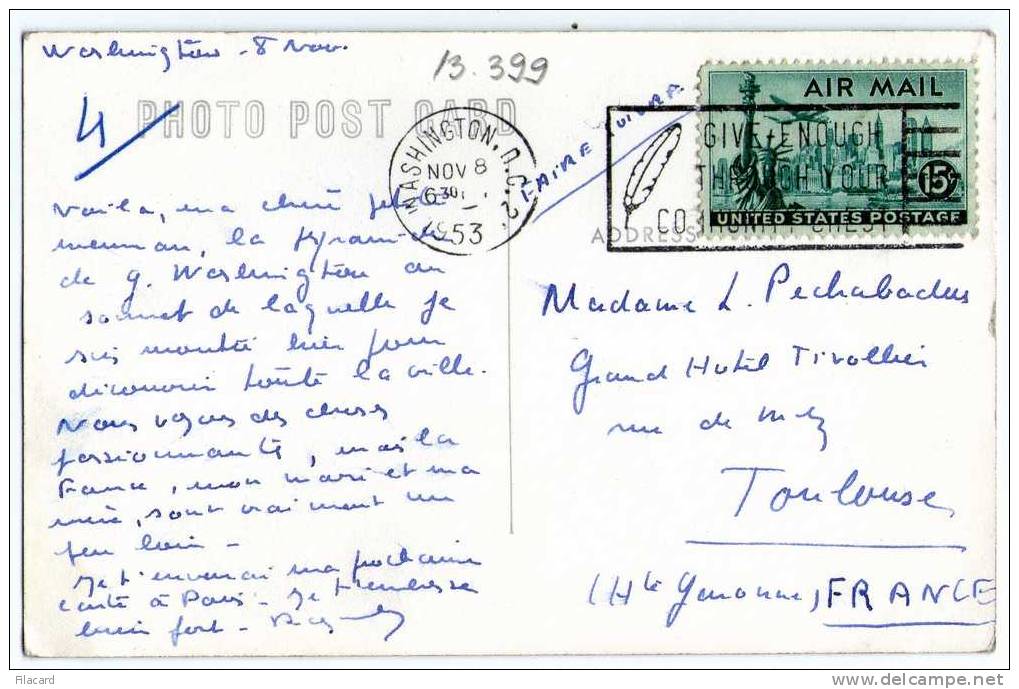 Washington - 8 Nov.
13.399
4
PHOTO POST CARD
WASHINGTON, D.C. 2
NOV 8
630
1953
FAIRE SUIVRE
AIR MAIL
GIVE ENOUGH
THROUGH YOUR
COMMUNITY CHEST
15¢
UNITED STATES POSTAGE
ADDRESS
Voilà, ma chère petite
maman, la pyramide
de G. Washington au
sommet de laquelle je
suis montée hier pour
découvrir toute la ville.
Nous voyons des choses
passionnantes, mais la
France, mon mari et ma
mère, sont vraiment un
peu loin -
Je t'enverrai ma prochaine
carte à Paris - Je t'embrasse
bien fort -
Madame L. Pechabadus
Grand Hotel Tivollier
rue de Metz
Toulouse
(Hte Garonne) FRANCE
Filacard
www.delcampe.net